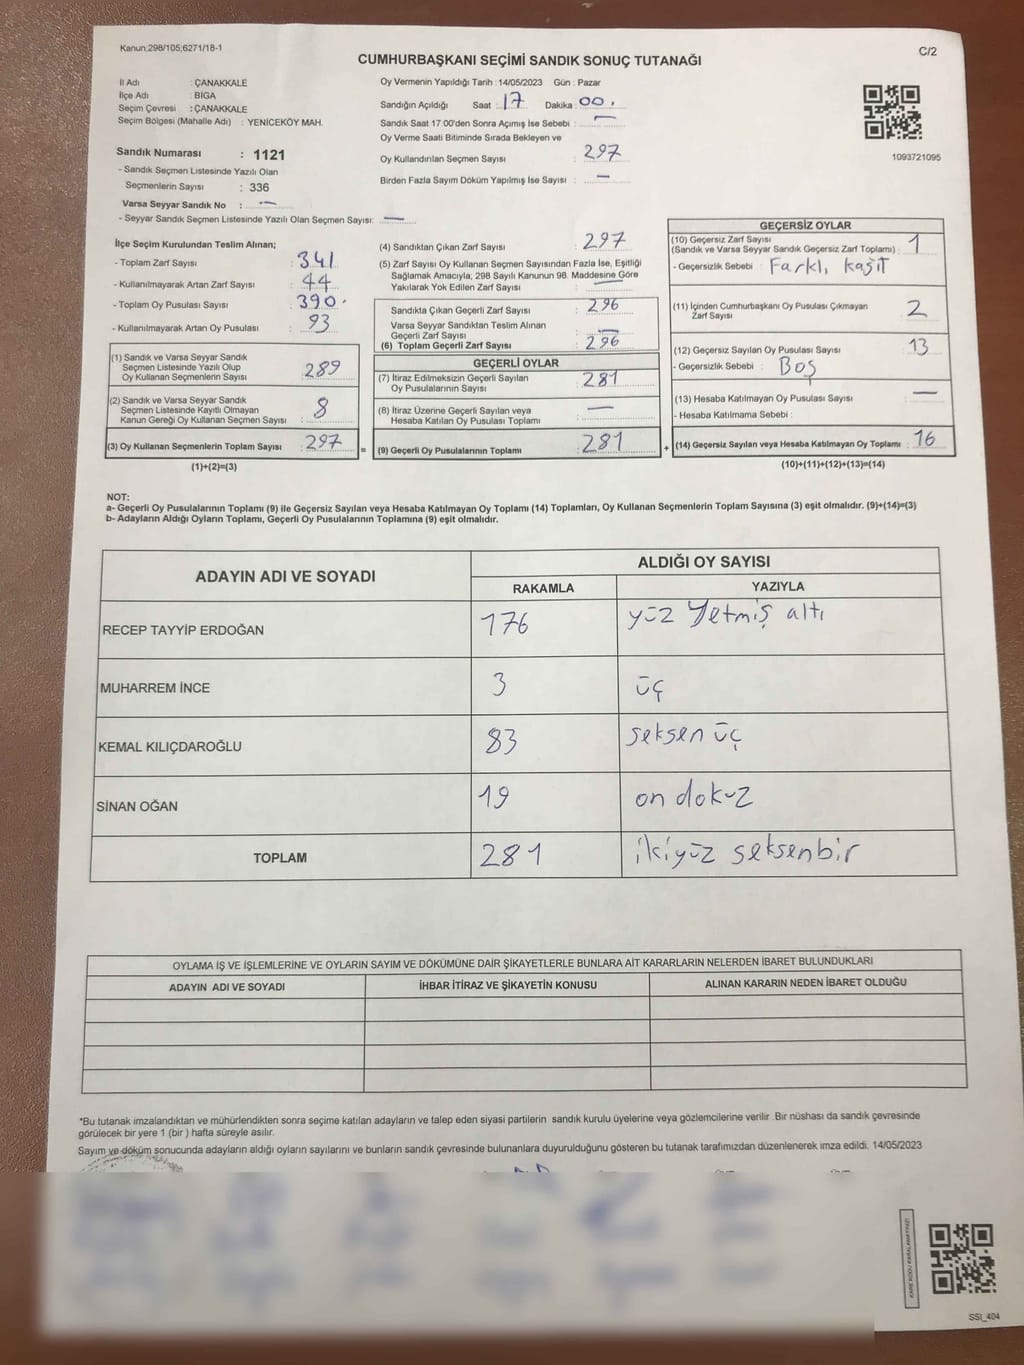 Kanun;298/105;6271/18-1
C/2
CUMHURBAŞKANI SEÇİMİ SANDIK SONUÇ TUTANAĞI
İl Adı : ÇANAKKALE
İlçe Adı : BİGA
Seçim Çevresi : ÇANAKKALE
Seçim Bölgesi (Mahalle Adı) : YENİCEKÖY MAH.
Sandık Numarası : 1121
- Sandık Seçmen Listesinde Yazılı Olan
Seçmenlerin Sayısı : 336
Varsa Seyyar Sandık No : —
- Seyyar Sandık Seçmen Listesinde Yazılı Olan Seçmen Sayısı: —
Oy Vermenin Yapıldığı Tarih : 14/05/2023 Gün : Pazar
Sandığın Açıldığı Saat : 17 Dakika : 00.
Sandık Saat 17.00'den Sonra Açılmış İse Sebebi : —
Oy Verme Saati Bitiminde Sırada Bekleyen ve
Oy Kullandırılan Seçmen Sayısı : 297
Birden Fazla Sayım Döküm Yapılmış İse Sayısı : —
1093721095
İlçe Seçim Kurulundan Teslim Alınan;
- Toplam Zarf Sayısı : 341
- Kullanılmayarak Artan Zarf Sayısı : 44
- Toplam Oy Pusulası Sayısı : 390.
- Kullanılmayarak Artan Oy Pusulası : 93
(1) Sandık ve Varsa Seyyar Sandık
Seçmen Listesinde Yazılı Olup
Oy Kullanan Seçmenlerin Sayısı : 289
(2) Sandık ve Varsa Seyyar Sandık
Seçmen Listesinde Kayıtlı Olmayan
Kanun Gereği Oy Kullanan Seçmen Sayısı : 8
(3) Oy Kullanan Seçmenlerin Toplam Sayısı : 297
(1)+(2)=(3)
(4) Sandıktan Çıkan Zarf Sayısı : 297
(5) Zarf Sayısı Oy Kullanan Seçmen Sayısından Fazla İse, Eşitliği
Sağlamak Amacıyla, 298 Sayılı Kanunun 98. Maddesine Göre
Yakılarak Yok Edilen Zarf Sayısı : —
Sandıkta Çıkan Geçerli Zarf Sayısı : 296
Varsa Seyyar Sandıktan Teslim Alınan
Geçerli Zarf Sayısı : —
(6) Toplam Geçerli Zarf Sayısı : 296
GEÇERLİ OYLAR
(7) İtiraz Edilmeksizin Geçerli Sayılan
Oy Pusulalarının Sayısı : 281
(8) İtiraz Üzerine Geçerli Sayılan veya
Hesaba Katılan Oy Pusulası Toplamı : —
= (9) Geçerli Oy Pusulalarının Toplamı : 281
GEÇERSİZ OYLAR
(10) Geçersiz Zarf Sayısı
(Sandık ve Varsa Seyyar Sandık Geçersiz Zarf Toplamı) : 1
- Geçersizlik Sebebi : Farklı kağıt
(11) İçinden Cumhurbaşkanı Oy Pusulası Çıkmayan
Zarf Sayısı : 2
(12) Geçersiz Sayılan Oy Pusulası Sayısı : 13
- Geçersizlik Sebebi : Boş
(13) Hesaba Katılmayan Oy Pusulası Sayısı : —
- Hesaba Katılmama Sebebi :
+ (14) Geçersiz Sayılan veya Hesaba Katılmayan Oy Toplamı : 16
(10)+(11)+(12)+(13)=(14)
NOT:
a- Geçerli Oy Pusulalarının Toplamı (9) ile Geçersiz Sayılan veya Hesaba Katılmayan Oy Toplamı (14) Toplamları, Oy Kullanan Seçmenlerin Toplam Sayısına (3) eşit olmalıdır. (9)+(14)=(3)
b- Adayların Aldığı Oyların Toplamı, Geçerli Oy Pusulalarının Toplamına (9) eşit olmalıdır.
ADAYIN ADI VE SOYADI ALDIĞI OY SAYISI
RAKAMLA YAZIYLA
RECEP TAYYİP ERDOĞAN 176 yüz Yetmiş altı
MUHARREM İNCE 3 üç
KEMAL KILIÇDAROĞLU 83 seksen üç
SİNAN OĞAN 19 on dokuz
TOPLAM 281 ikiyüz seksenbir
OYLAMA İŞ VE İŞLEMLERİNE VE OYLARIN SAYIM VE DÖKÜMÜNE DAİR ŞİKAYETLERLE BUNLARA AİT KARARLARIN NELERDEN İBARET BULUNDUKLARI
ADAYIN ADI VE SOYADI İHBAR İTİRAZ VE ŞİKAYETİN KONUSU ALINAN KARARIN NEDEN İBARET OLDUĞU
*Bu tutanak imzalandıktan ve mühürlendikten sonra seçime katılan adayların ve talep eden siyasi partilerin sandık kurulu üyelerine veya gözlemcilerine verilir. Bir nüshası da sandık çevresinde
görülecek bir yere 1 (bir ) hafta süreyle asılır.
Sayım ve döküm sonucunda adayların aldığı oyların sayılarını ve bunların sandık çevresinde bulunanlara duyurulduğunu gösteren bu tutanak tarafımızdan düzenlenerek imza edildi. 14/05/2023
KARE KODU KARALAMAYINIZ!
SSI_404